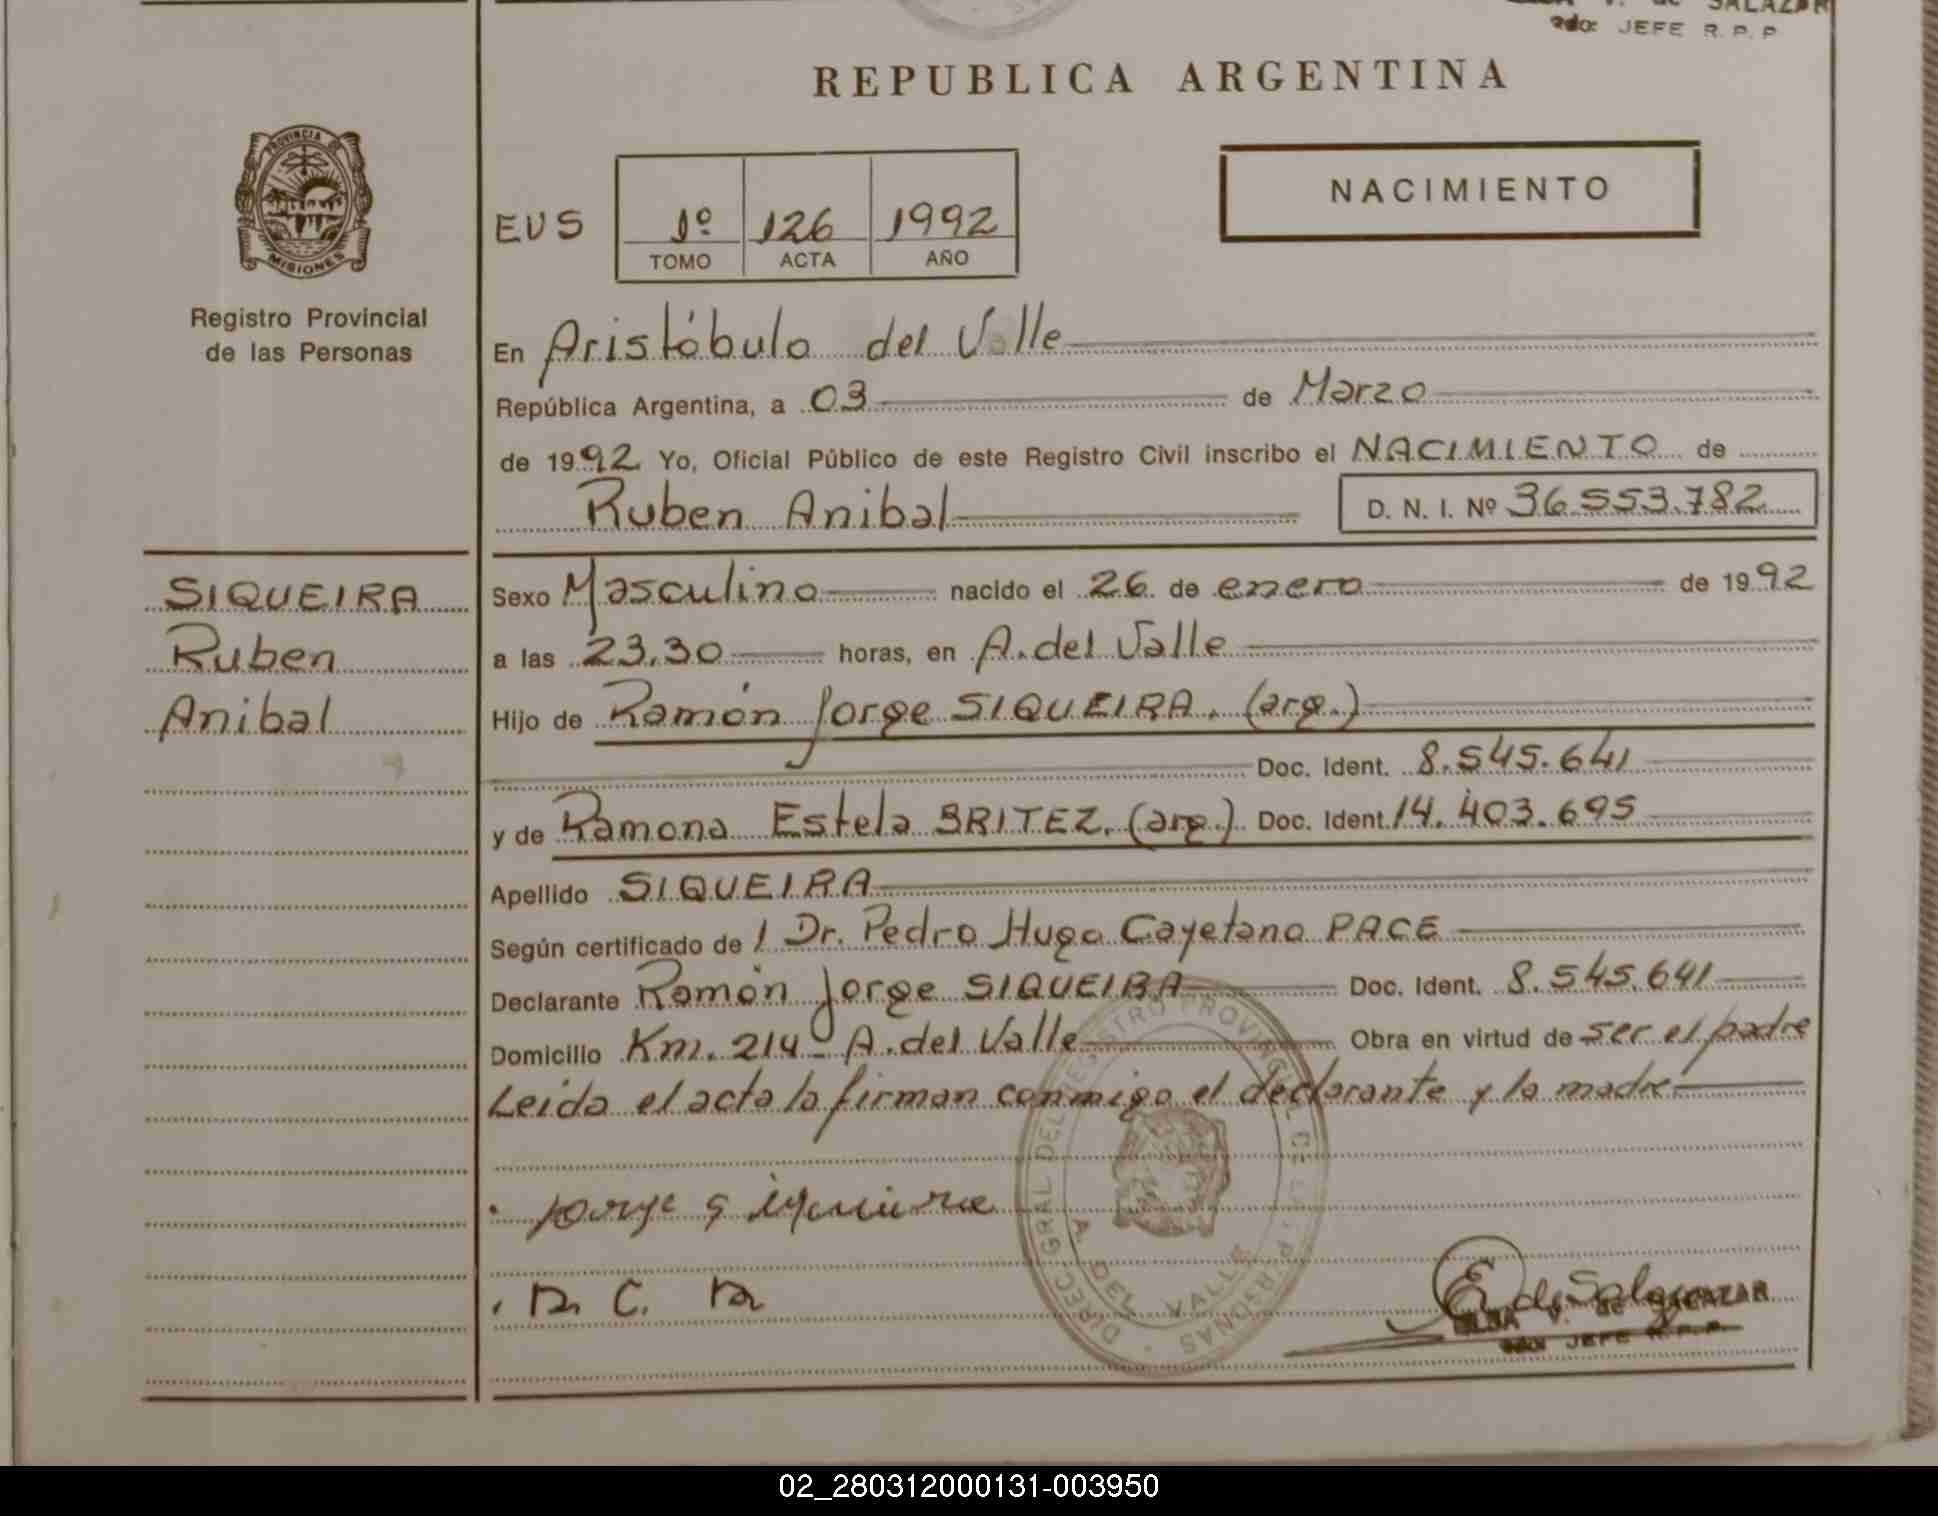 SALAZAR
JEFE R. P. P
REPUBLICA ARGENTINA
PROVINCIA DE
MISIONES
Registro Provincial
de las Personas
NACIMIENTO
EVS
1º 126 1992
TOMO ACTA AÑO
En Aristóbulo del Valle
República Argentina, a 03 de Marzo
de 1992 Yo, Oficial Público de este Registro Civil inscribo el NACIMIENTO de
Ruben Anibal D. N. I. Nº 36.553.782
SIQUEIRA
Ruben
Anibal
Sexo Masculino nacido el 26 de enero de 1992
a las 23,30 horas, en A. del Valle
Hijo de Ramón Jorge SIQUEIRA. (arg.)
Doc. Ident. 8.545.641
y de Ramona Estela BRITEZ. (arg.) Doc. Ident. 14.403.695
Apellido SIQUEIRA
Según certificado de / Dr. Pedro Hugo Cayetano PACE
Declarante Ramón Jorge SIQUEIRA Doc. Ident. 8.545.641
Domicilio Km. 214 - A. del Valle Obra en virtud de ser el padre
Leída el acta la firman conmigo el declarante y la madre
DIREC. GRAL DEL REGISTRO PROVINCIAL DE LAS PERSONAS
A. DEL VALLE
E de Salazar
V. de SALAZAR
JEFE R.P.P.
02_280312000131-003950